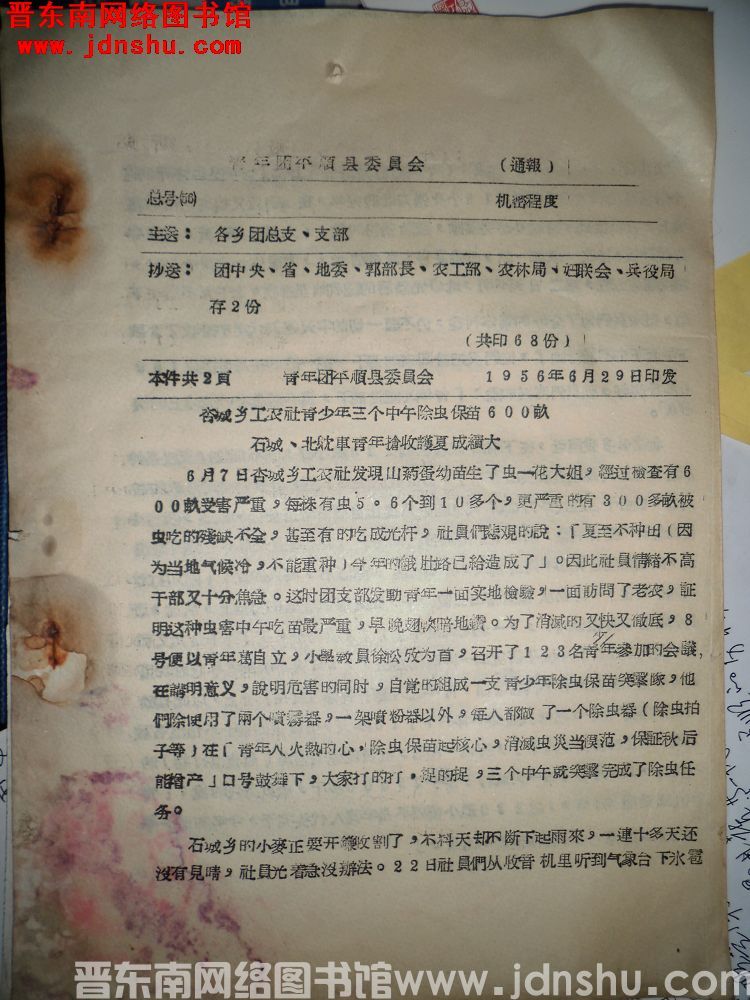 晋东南网络图书馆
www.jdnshu.com
青年团平順县委員会 (通報)
总号(56) 机密程度
主送： 各乡团总支、支部
抄送： 团中央、省、地委、郭部長、农工部、农林局、妇联会、兵役局
存2份
(共印68份)
本件共2頁 青年团平順县委員会 1956年6月29日印发
杏城乡工农社青少年三个中午除虫保苗600畝
石城、北躭車青年搶收護夏成績大
6月7日杏城乡工农社发現山药蛋幼苗生了虫一花大姐，經过檢查有6
00畝受害严重，每株有虫5。6个到10多个，更严重的有300多畝被
虫吃的残缺不全，甚至有的吃成光杆，社員們悲观的說：「夏至不种田(因
为当地气候冷，不能重种)今年的餓肚路已給造成了」。因此社員情緒不高
干部又十分焦急。这时团支部发動青年一面实地檢驗，一面訪問了老农，証
明这种虫害中午吃苗最严重，早晚翅軟暗地鑽。为了消滅的又快又徹底，8
号便以青年葛自立，小學教員徐松攸为首，召开了123名青少年参加的会議，
在講明意义，說明危害的同时，自覚的組成一支青少年除虫保苗突擊隊，他
們除使用了兩个噴霧器，一架噴粉器以外，每人都做了一个除虫器(除虫拍
子等)在「青年人火熱的心，除虫保苗起核心，消滅虫災当模范，保証秋后
能增产」口号鼓舞下，大家打的打，捉的捉，三个中午就突擊完成了除虫任
务。
石城乡的小麥正要开鐮收割了，不料天却不断下起雨來，一連十多天还
沒有見晴，社員光着急沒办法。22日社員們从收音机里听到气象台下氷雹
晋东南网络图书馆www.jdnshu.com